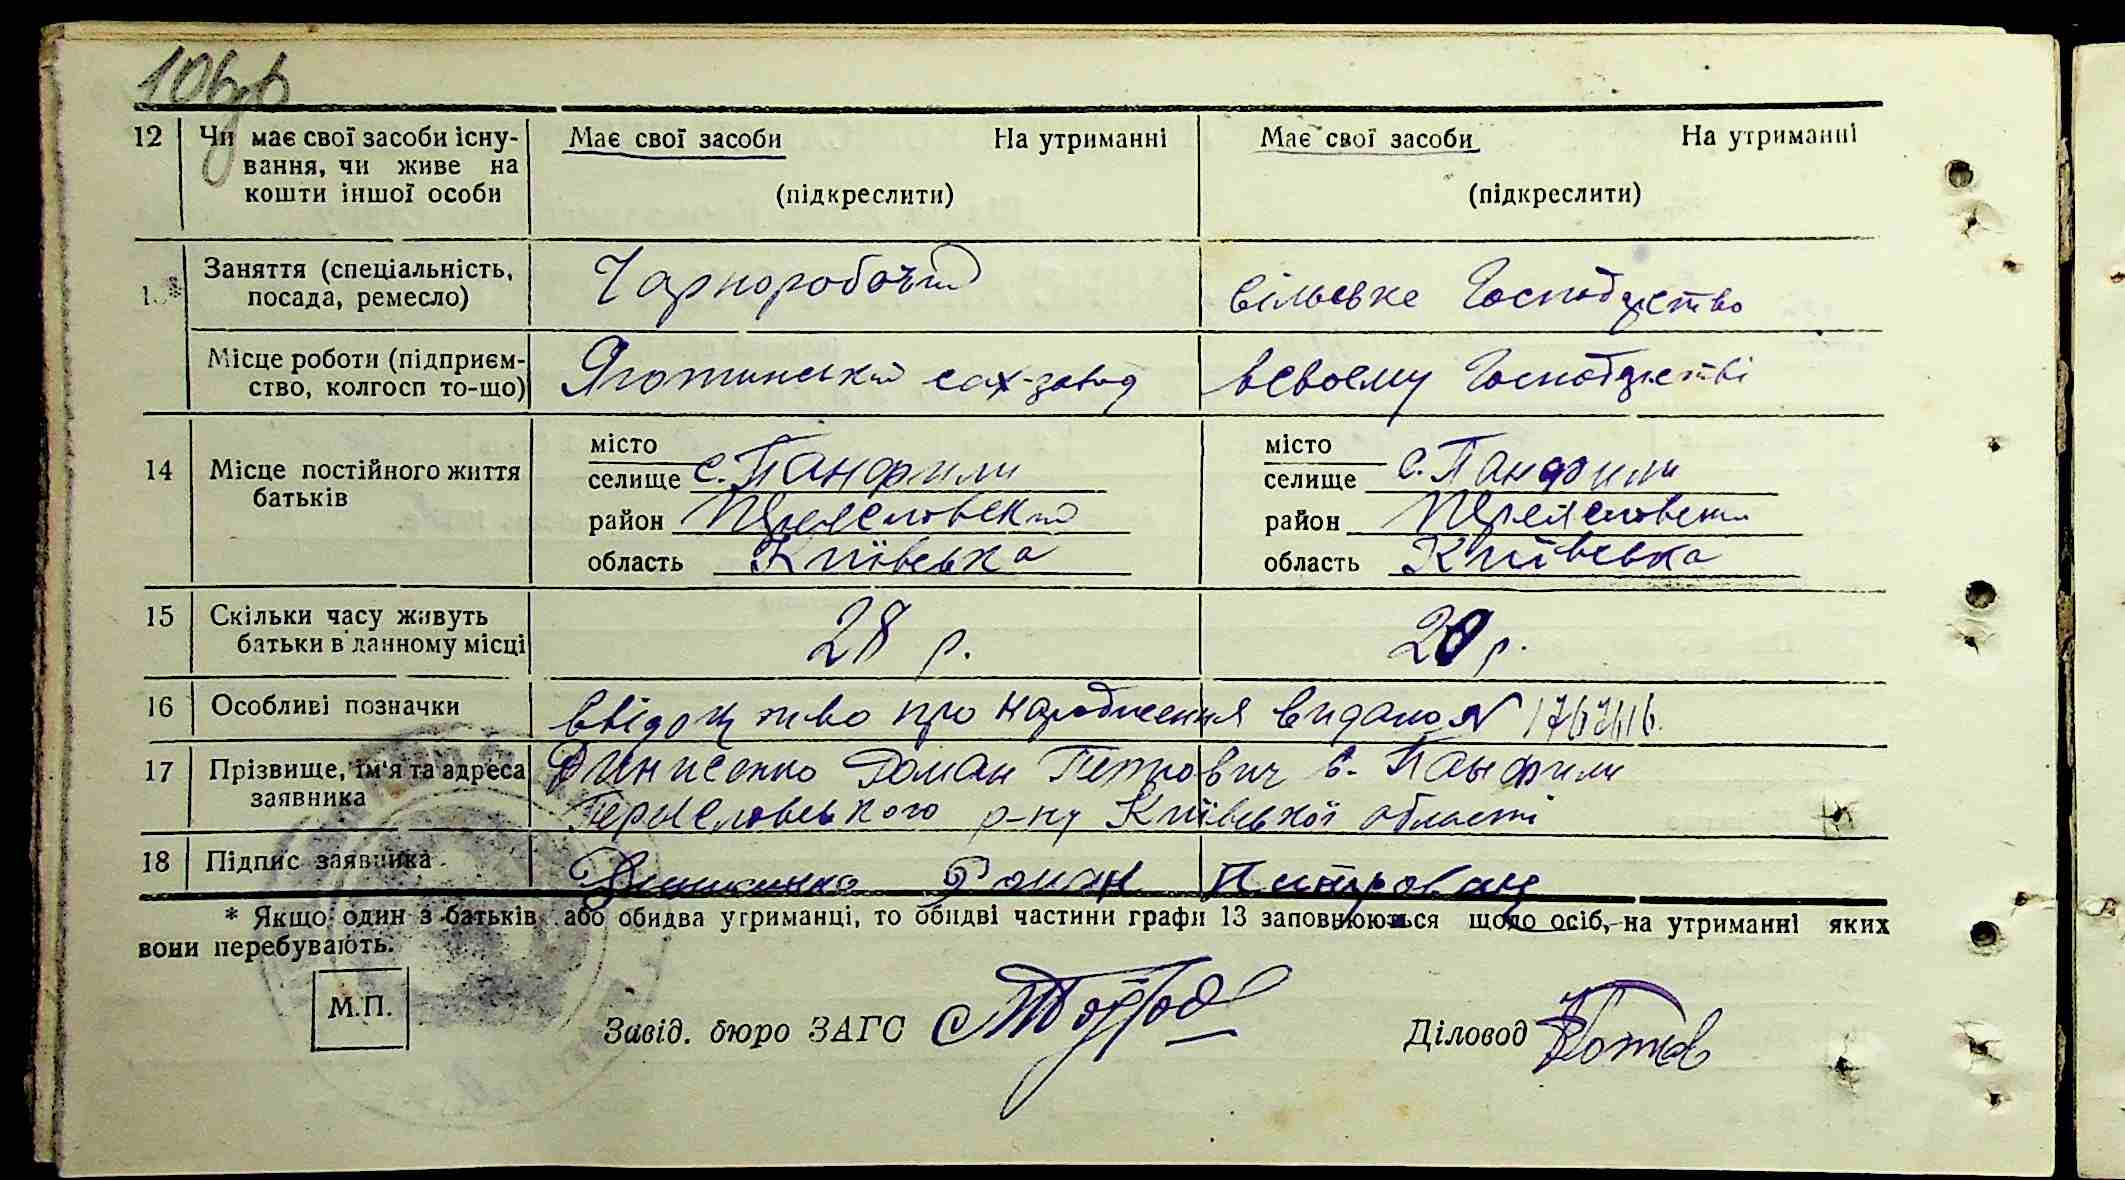 106зв
12 Чи має свої засоби існу- Має свої засоби На утриманні Має свої засоби На утриманні
вання, чи живе на
кошти іншої особи (підкреслити) (підкреслити)
Заняття (спеціальність, Чарноробочий вільське Господарство
посада, ремесло)
Місце роботи (підприєм- Яготинський сах-завод всвоєму Господарстві
ство, колгосп то-що)
місто місто
14 Місце постійного життя селище с. Панфили селище с. Панфили
батьків район Переяславский район Переяславский
область Київська область Київська
15 Скільки часу живуть 28 р. 20 р.
батьки в данному місці
16 Особливі позначки свідоцтво про народження видано №
17 Прізвище, ім'я та адреса Динисенко Роман Петрович с. Панфили
заявника Переяславського р-ну Київської області
18 Підпис заявника Роман Питрович
* Якщо один з батьків або обидва утриманці, то обидві частини графи 13 заповнюються щодо осіб, на утриманні яких
вони перебувають.
М.П.
Завід. бюро ЗАГС Діловод